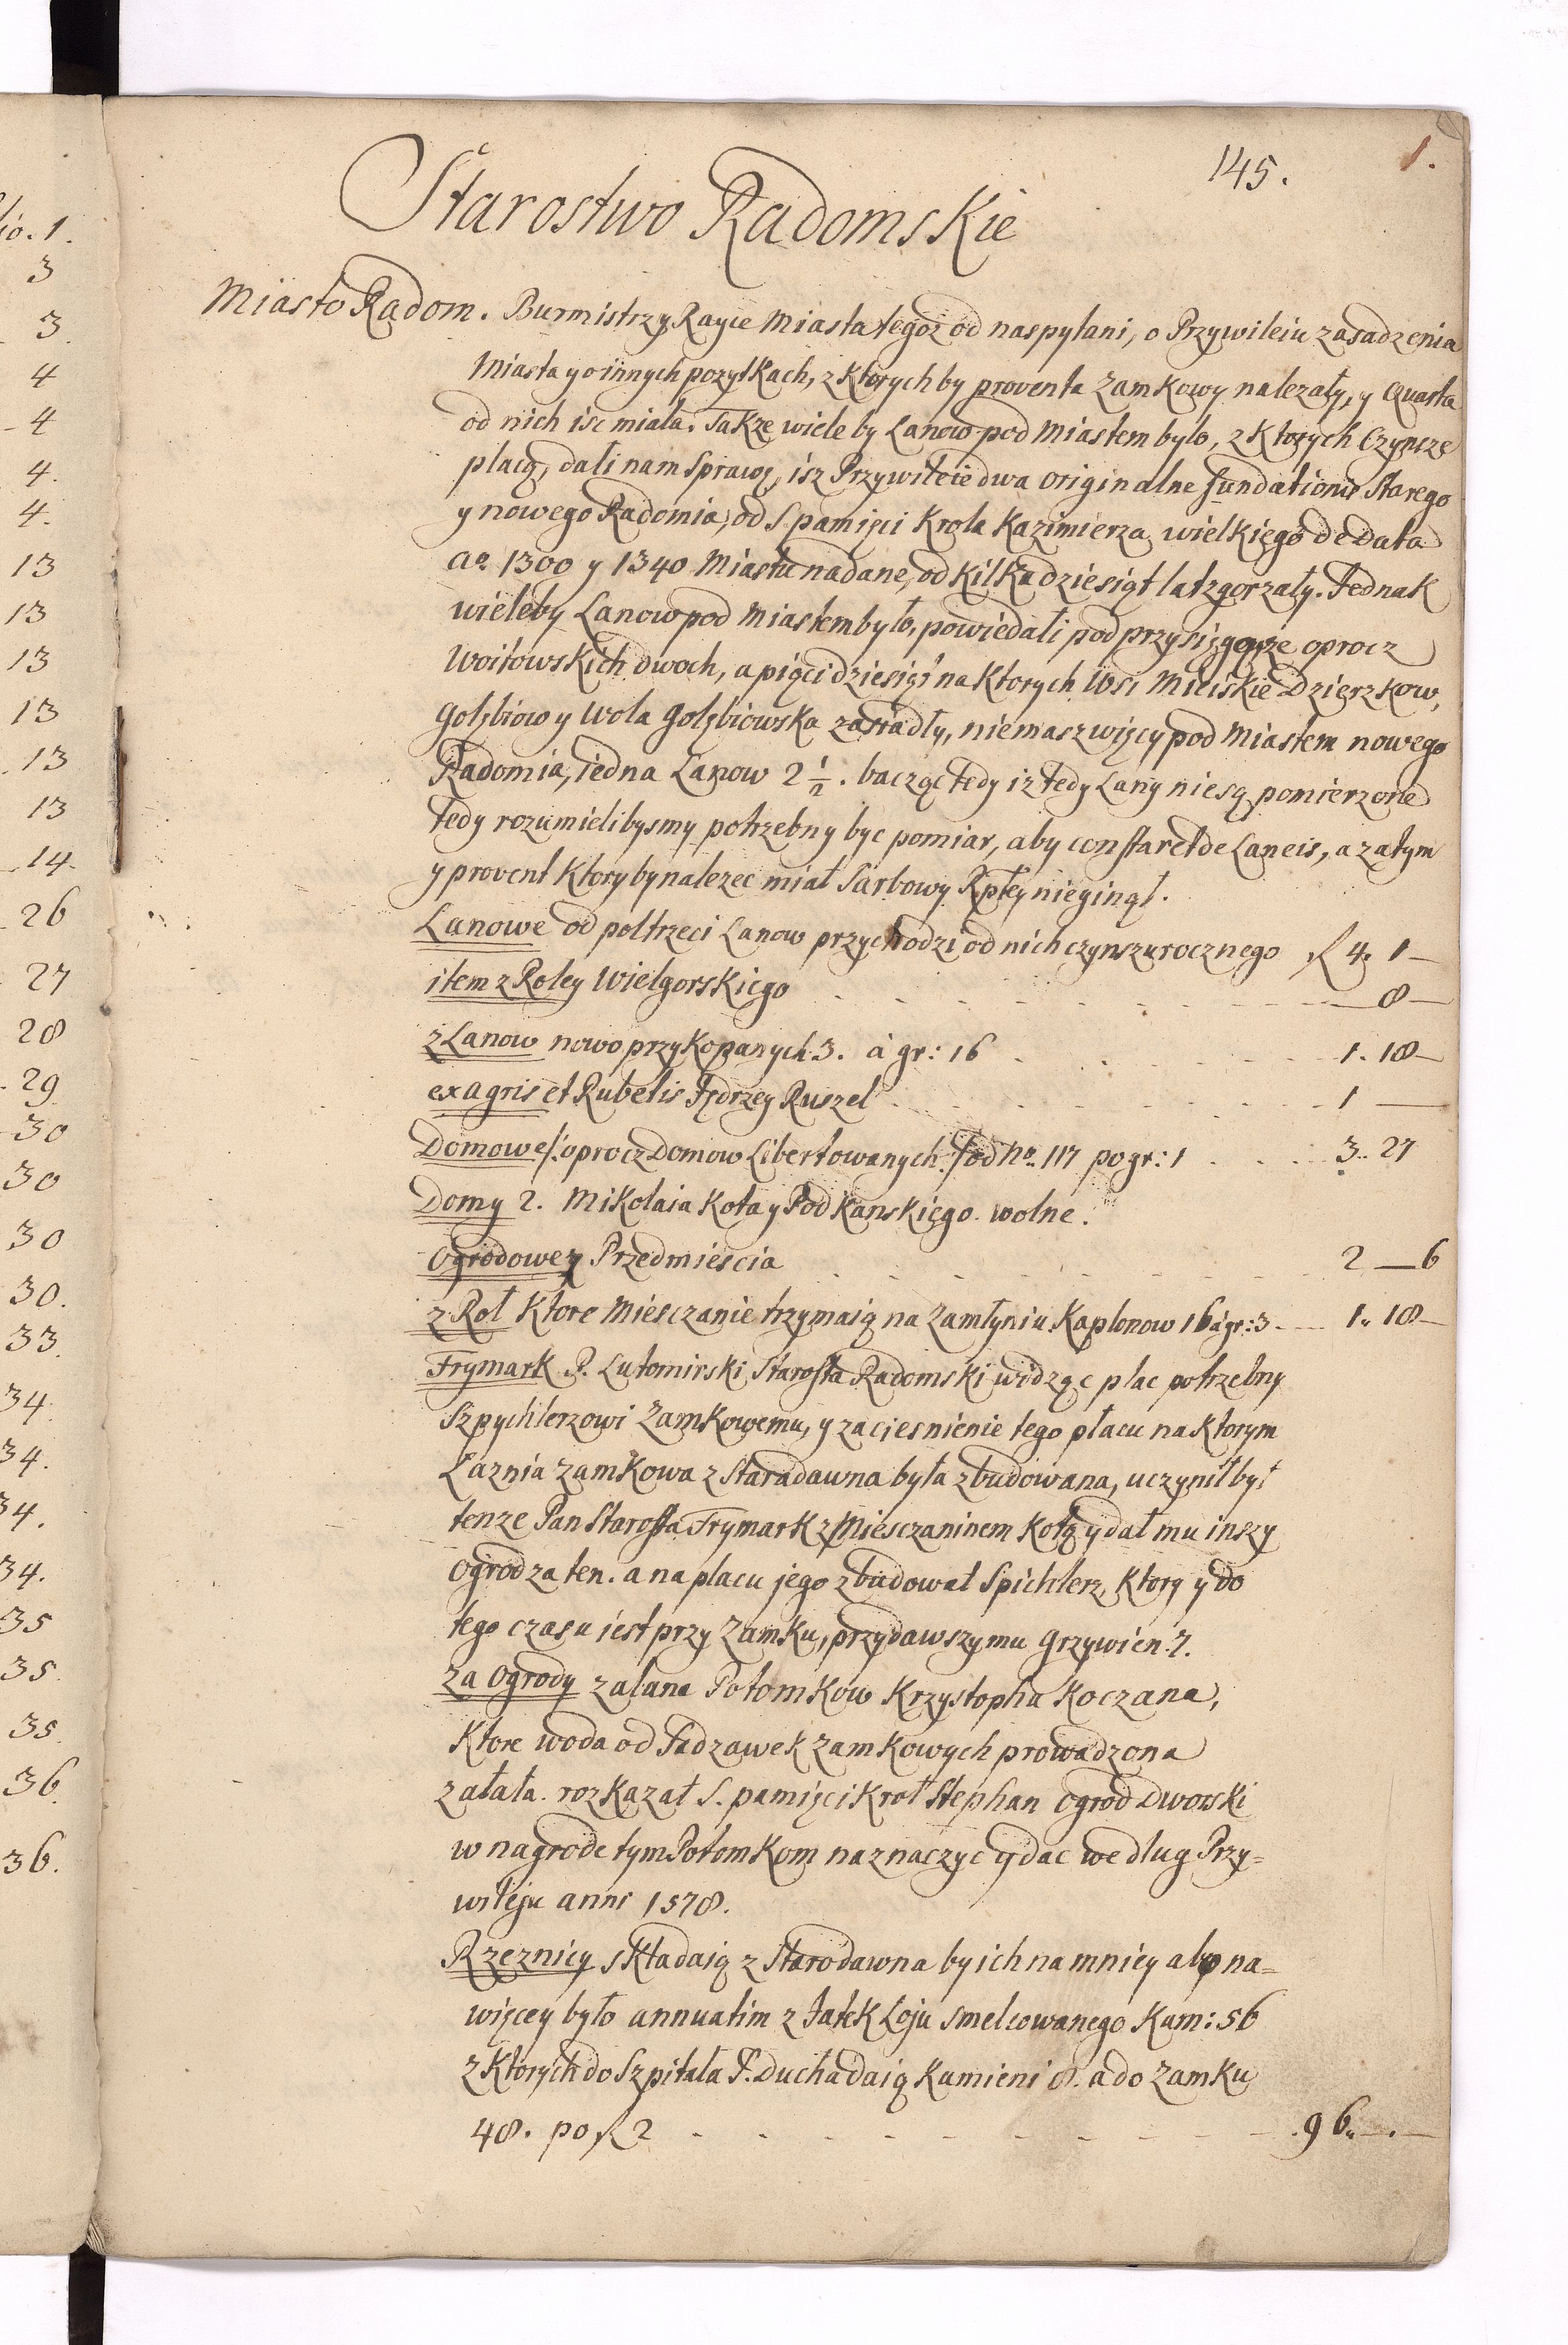 io. 1.
3
3.
4
4
4.
4.
13
13
13
13
13
13
14
26
27
28
29
30
30
30
30.
33.
34
34.
34.
34.
35
35
35.
36.
36.
145.
1.
Starostwo Radomskie
Miasto Radom. Burmistrzy Rayce Miasta tegoz od nas pytani, o Przywileiu zasadzenia
Miasta y o innych pozytkach, z ktorych by proventa Zamkowy nalezały, y Quarta
od nich isc miała. Takze wiele by Lanow pod Miastem było, z ktorych Czynsze
płacą, dali nam sprawę, isz Przywileie dwa originalne fundationis Starego
y nowego Radomia, od S. pamięci Krola Kazimierza wielkiego de data
Ao. 1300 y 1340 Miastu nadane, od kilkadziesiąt lat zgorzały. Jednak
wieleby Lanow pod Miastem było, powiedali pod przysięgą, ze oprocz
Woitowskich dwoch, a pięcidziesiąt na ktorych Wsi Mieiskie Dzierzkow,
Gołębiow y Wola Gołębiowska zasiadły, niemasz więcy pod Miastem nowego
Radomia, iedna Lanow 2 1/2. bacząc tedy iz tedy Lany nie są pomierzone
tedy rozumielibysmy potrzebny byc pomiar, aby constaret de Laneis, a zatym
y provent ktory by nalezec miał Skarbowy Rptey nieginął.
Lanowe od poltrzeci Lanow przychodzi od nich czynszu rocznego fl 4. 1 —
item z Roley Wielgorskiego — 8 —
z Lanow nowo przykopanych 3. a gr: 16 1. 18 —
ex agris et Rubetis Jędrzey Ruszel 1 —
Domowe /: oprocz Domow Libertowanych :/ od No. 117 po gr: 1 3.. 27
Domy 2. Mikolaia Kota y Podkanskiego. wolne.
Ogrodowe z Przedmiescia 2 — 6
z Rol ktore Miesczanie trzymaią na Zamłyniu. Kaplonow 16 a gr: 3 1.. 18 —
Frymark P. Lutomirski Starosta Radomski widząc plac potrzebny
Szpychlerzowi Zamkowemu, y zaciesnienie tego placu na ktorym
Łaznia zamkowa z Staradawna była zbudowana, uczynił był
tenze Pan Starosta Frymark z Miesczaninem Kotą y dał mu inszy
ogrod za ten. a na placu jego zbudował Spichlerz, ktory y do
tego czasu iest przy Zamku, przydawszy mu Grzywien 7.
Za Ogrody zalane Potomkow Krzystopha Koczana,
ktore woda od Sadzawek Zamkowych prowadzona
zalała. rozkazał S. pamięci Krol Stephan Ogrod Dworski
w nagrode tym Potomkom naznaczyc y dac według Przy=
wileju anni 1578.
Rzeznicy składaią z Starodawna by ich namniey albo na=
więcey było annuatim z Jatek Łoju smelcowanego Kam: 56
z ktorych do Szpitala S. Ducha daią Kamieni 8. a do Zamku
48. po fl 2 96.. — . —